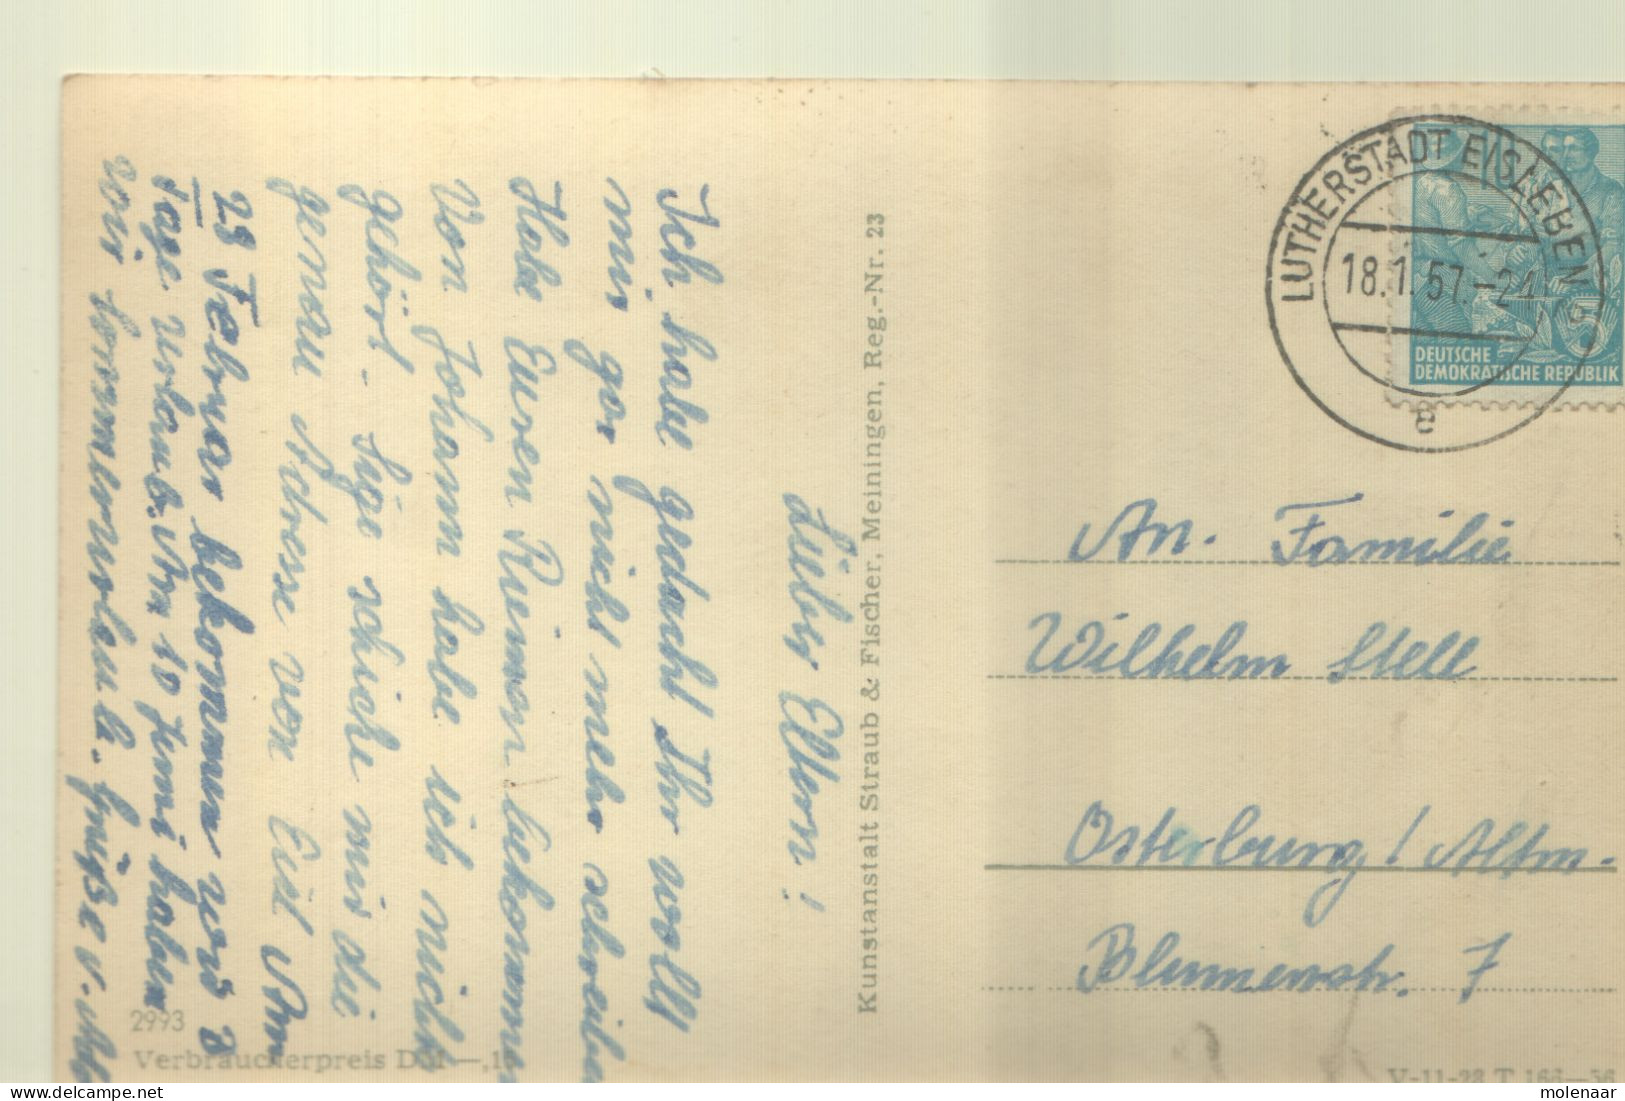 Liebe Eltern!
Ich habe gedacht Ihr wollt
mir gar nicht mehr schreiben
Habe Euren Reimen bekommen
Von Johann habe ich nicht
gehört. schicke mir die
genau Adresse von
28 Februar bekommen wir 3
Tage urlaub. Am 10 Juni haben
wir Sommerurlaub. Grüße v.
2993
Verbraucherpreis DM —,1
Kunstanstalt Straub & Fischer, Meiningen, Reg.-Nr. 23
LUTHERSTADT EISLEBEN
18.1.57.-24
e
5
DEUTSCHE
DEMOKRATISCHE REPUBLIK
An. Familie
Wilhelm Stell
Osterburg / Altm.
Blumenstr. 7
V-11-28 T 166—56
delcampe.net
molenaar